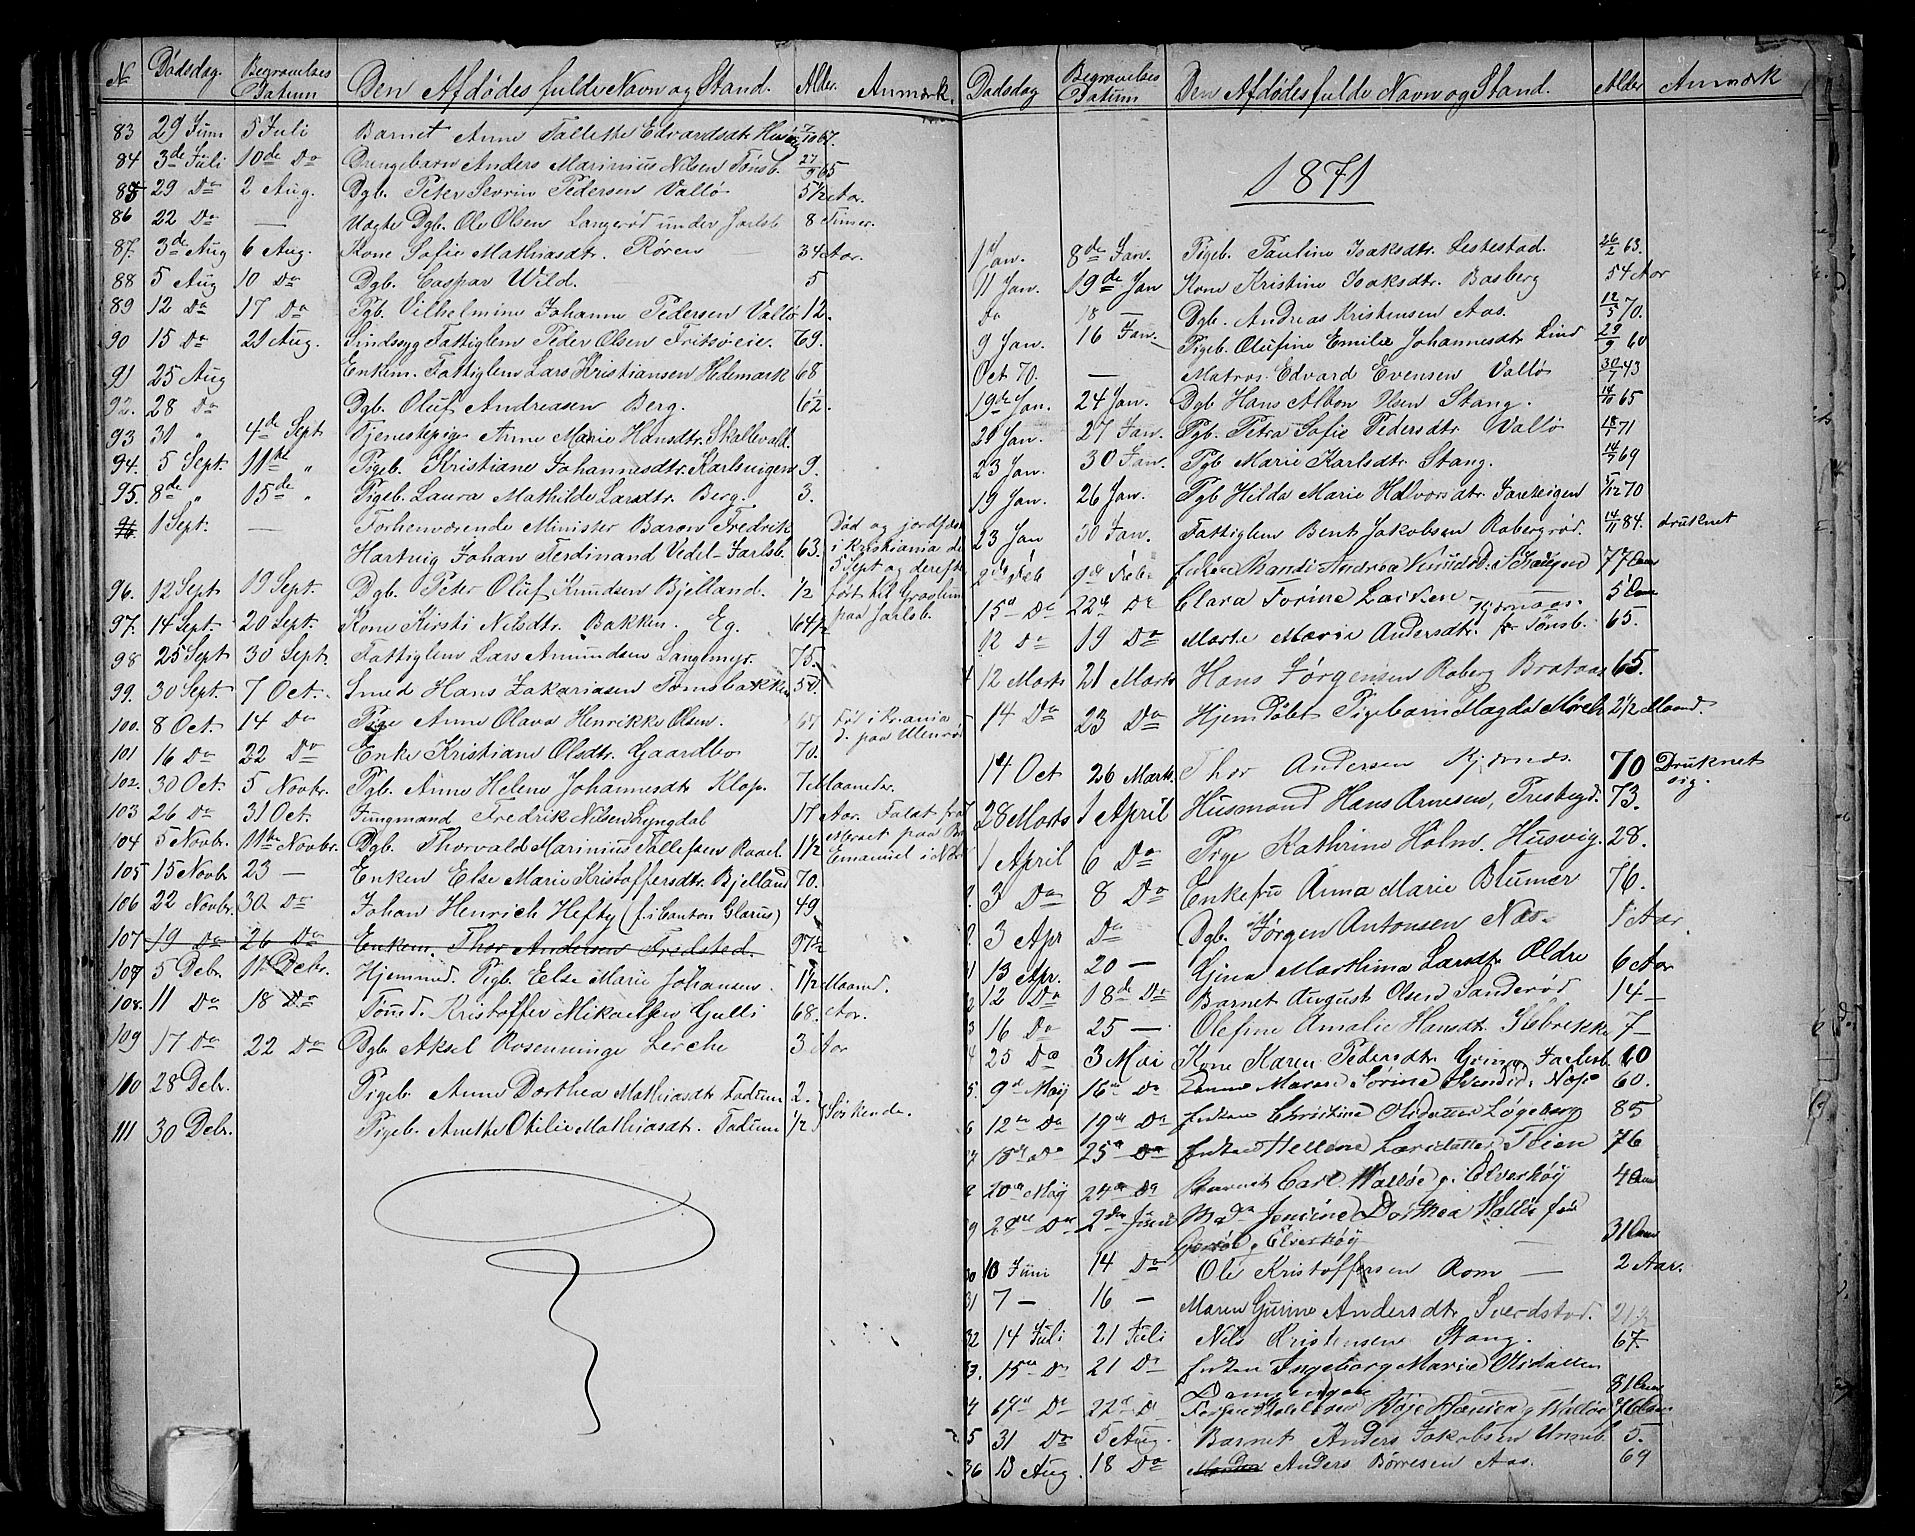 No Dødsdag. Begravelses Datum Den Afdødes fulde Navn og Stand. Alder. Anmærk.
83 29 Juni 5 Juli Barnet Anne Tallette Edvardsdtr Husøe 7/10 67.
84 3de Juli 10de Do Drengebarn Anders Marinius Nilsen Tønsb. 27/9 65
85 29 Do 2 Aug. Dgb. Peter Sevrin Pedersen Vallø 5 1/2 Aar.
86 22 Do — Uægte Dgb. Ole Olsen Langerød under Jarlsb 8 Timer.
87. 3de Aug 6 Aug. Kone Sofie Mathiasdtr. Røren 34 Aar.
88 5 Aug 10 Do Dgb. Caspar Wild. 5
89 12 Do 17 Do Pgb. Vilhelmine Johanne Pedersen Vallø 12.
90 15 Do 21 Aug. Sindssyg Fattiglem Peder Olsen Fritsøeie. 69.
91 25 Aug Enkem. Fattiglem Lars Kristiansen Hedemark 68
92. 28 Do Dgb. Oluf Andreasen Berg.
93 31 " 4de Sept Tjenestepige Anne Marie Hansdtr. Skallevold.
94. 5 Sept. 11te " Pigeb. Kristiane Johannesdtr. Karlsvigen 9.
95. 8de " 15de " Pigeb. Laura Mathilde Larsdtr. Berg. 3.
96 1 Sept. — Forhenværende Minister Baron Fredrik Død og jordfæs
Hartvig Johan Ferdinand Vedel-Jarlsb. 63. i Kristiania de
5 Sept og derefte
96. 12 Sept 19 Sept. Dgb. Peter Oluf Knudsen Bjelland. 1/2 ført til Gravlun
97. 14 Sept. 20 Sept. Kone Kirsti Nilsdtr. Bakken. Eg. 64 1/2 paa Jarlsb.
98 25 Sept 30 Sept. Fattiglem Lars Amundsen Langemyr. 75.
99. 30 Sept. 7 Oct. Smed Hans Zakariasen Tomsbakken 50.
100. 8 Oct. 14 Do Pige Anne Olava Henrikke Olsen. Fød i Krania
101 16 Do 22 Do Enke Kristiane Olsdtr. Gaardbo 70. d. paa
102. 30 Oct. 5 Novbr. Pgb. Anne Helene Johannesdtr Klop. 7 Maaneder.
103 26 Do 31 Oct. Jungmand Fredrik Nilsen Lyngdal 17 Aar. Faldt fra
104 5 Novbr. 11te Novbr. Dgb. Thorvald Marinius Tollefsen Ravel. 1 1/2 paa
105 15 Novbr 23 — Enken Else Marie Kristoffersdtr. Bjelland 70. Emanuel i
106 22 Novbr. 30 Do Johan Henrich Hefty (f. i Canton Glarus) 49
107 19 Do 26 Do Enkem. Thor Andersen Fredsted. 97 1/2
107 5 Debr. 11 Debr. Hjemmd. Pigb. Else Marie Johansen. 1 1/2 Maaned.
108. 11 Do 18 Do Tømd. Kristoffer Mikaelsen Gulli 68. Aar.
109 17 Do 22 Do Dgb Aksel Rosenninge Lerche 3 Aar
110 28 Debr. Pigeb. Anne Dorthea Mathiasdtr Fadum 2.
111 30 Debr. Pigeb. Anette Otilie Mathiasdtr. Fadum 1/2 } Søskende.
Dødsdag Begravelses Datum Den Afdødes fulde Navn og Stand. Alder Anmærk
1871
1 Jan. 8de Jan. Pigeb. Pauline Isaksdtr. Lestestad. 26/2 63.
11 Jan. 19de Jan Kone Kristine Isaksdtr. Basberg 54 Aar
Do 18 — Dgb. Andreas Kristensen Aas. 12/5 70.
9 Jan. 16 Jan. Pigeb. Olufine Emilie Johannesdtr Lind 29/9 60
Oct 70. — Matros. Edvard Evensen Vallø 30/7 43
19de Jan. 24 Jan. Dgb Hans Albon Olsen Stang. 14/10 65
21 Jan. 27 Jan. Pgb. Petra Sofie Pedersdtr Vallø 18/1 71
23 Jan. 30 Jan. Pgb Marie Karlsdtr. Stang. 14/7 69
19 Jan. 26 Jan. Pgb Hilda Marie Halvorsdtr. 70
23 Jan 30 Jan. Fattiglem Bent Jakobsen Robergrød. 14/11 84. druknet
2de Feb 9de Feb. Enken Randi Andrea 77 Aar
15d Do 22de Do Clara Torine Larsen 5 Aar
12 Do 19 Do Marte Marie Andersdtr. Kjærnaas. Tønsb. 65.
12 Marts 21 Marts Hans Jørgensen Roberg Brataas 65.
14 Do 23 Do Hjemdøbt Pigebarn Magda Mørch 2 1/2 Maaned.
14 Oct 26 Marts. Thor Andersen Kjærnes. 70 Druknet
sig.
28 Marts 1 April Husmand Hans Arnesen, Trestegd. 73.
1 April 6 Do Pige Kathrine Holm. Husvig. 28.
3 Do 8 Do Enkefru Anna Marie Blumer 76.
3 Apr Do Dgb. Jørgen Antonsen Næs. 1 Aar.
13 Apr. 20 — Gina Marthina Larsdtr. Oldre 6 Aar
12 Do 18de Do Barnet August Olsen Sanderød 14 —
16 Do 25 — Olefine Amalie Hansdtr. Sæbrekke 7 —
25 Do 3 Mai Kone Karen Pedersdtr. Jarlsb. 60
5. 9de Maj 16de Do Maren Sørine Nes 60.
6 12te Do 19de Do Enken Christine Løgeberg 85
7 18de Do 25de Do Enken Hellene Larsdatter Teien 76
8 20de Maj 24de Do Barnet Carl Walløe p. Elverhøj 4 Aar
9 Do Juni Mda Jensine Dorthea Walløe fød
p. Elverhøj 31 Aar
30 10 Juni 14 Do Ole Kristoffersen Rom — 2 Aar.
31 7 — 16 — Maren Gurine Andersdtr. Sverdstad.
32 14 Juli 21 Juli Nils Kristensen Stang. 67.
3. 15de Do 21 Do Enken Ingeborg Marie
81 Aar
4 17de Do 22de D Hansen Walløe
5 31 Do 5 Aug. Barnet Anders Jakobsen Unneb. 5.
36 13 Aug. 18 Do Manden Anders Børresen Aas. 69